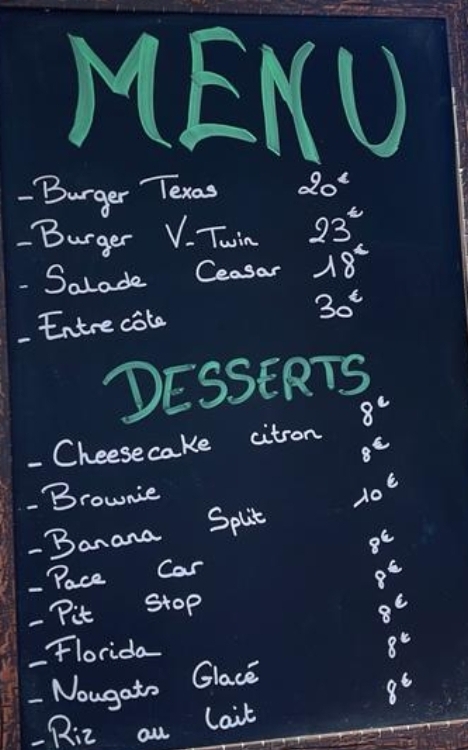 MENU
- Burger Texas 20€
- Burger V-Twin 23€
- Salade Ceasar 18€
- Entrecôte 30€
DESSERTS
- Cheesecake citron 8€
- Brownie 8€
- Banana Split 10€
- Pace Car 8€
- Pit Stop 8€
- Florida 8€
- Nougats Glacé 8€
- Riz au lait 8€